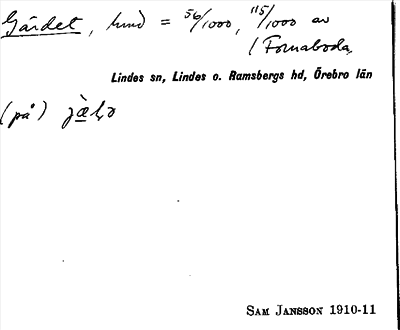 Gärdet, hmd = 56/1000, 115/1000 av
1 Fornaboda,
Lindes sn, Lindes o. Ramsbergs hd, Örebro län
(på)
SAM JANSSON 1910-11